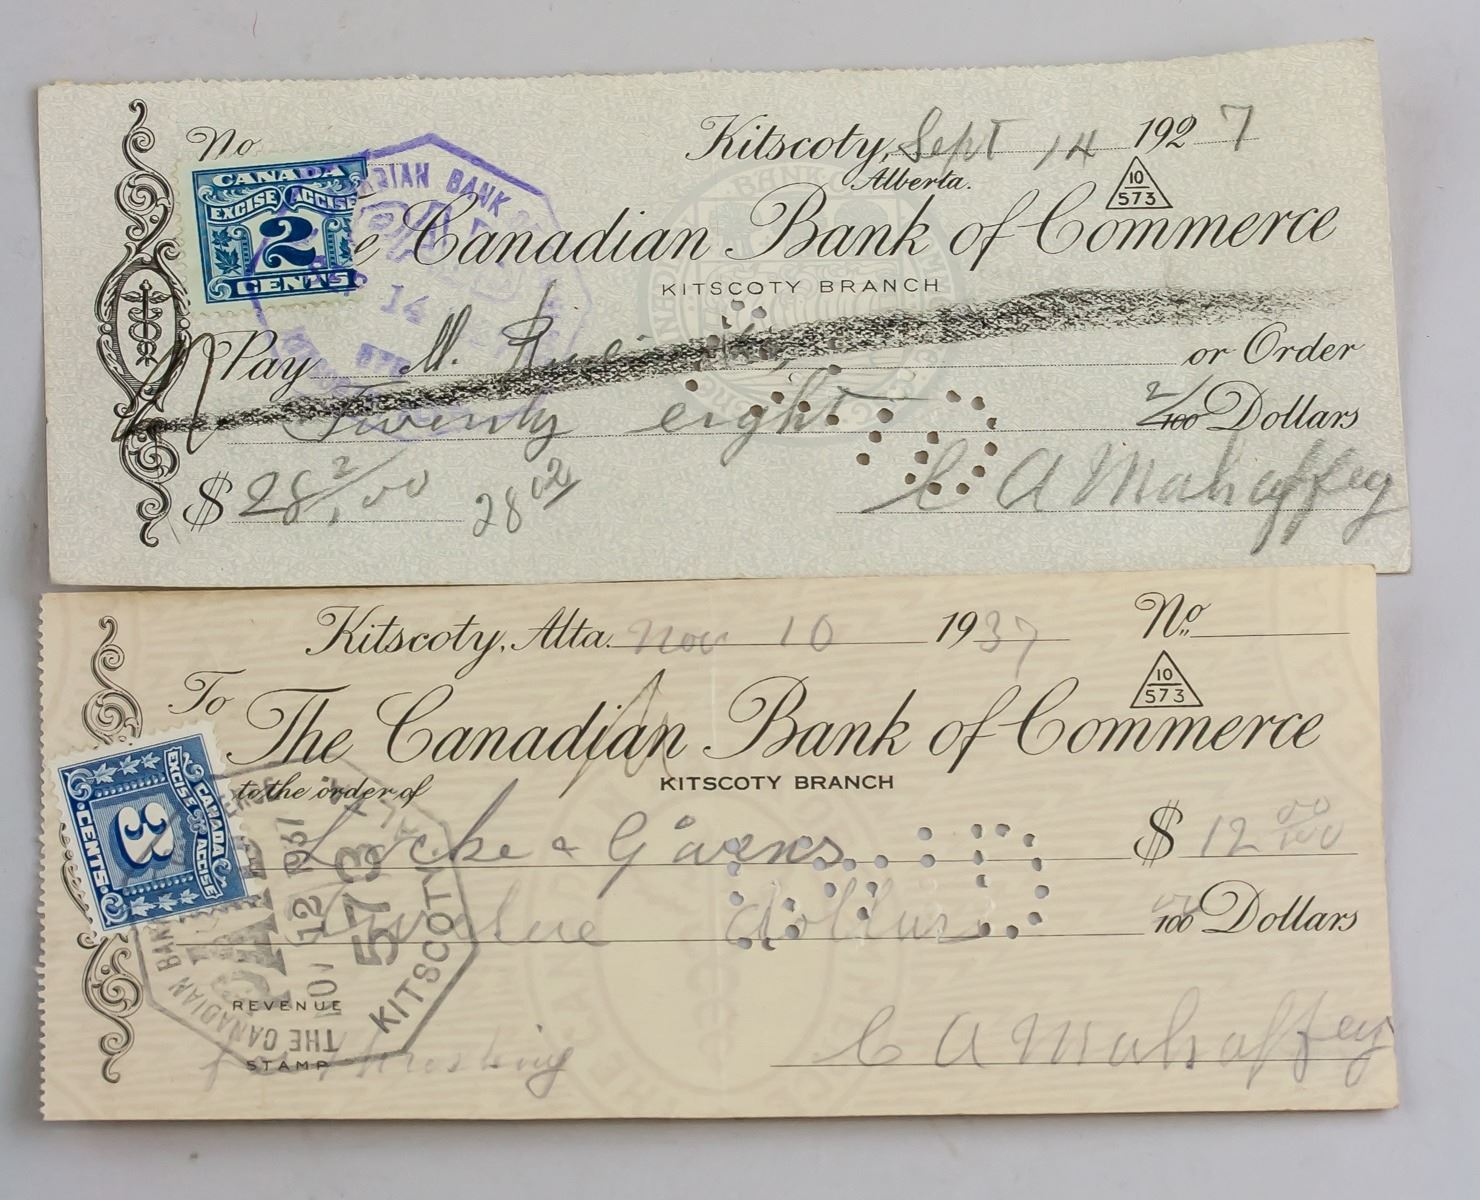 No
Kitscoty, Sept 14 1927
Alberta.
10
573
CANADA
EXCISE ACCISE
2
CENTS
CANADIAN BANK OF
14
e Canadian Bank of Commerce
KITSCOTY BRANCH
Pay M. or Order
Twenty eight 2/100 Dollars
$ 28 2/100 28 02
C A Mahaffey
Kitscoty, Alta. Nov 10 1937 No.
10
573
To
The Canadian Bank of Commerce
KITSCOTY BRANCH
to the order of
Locke & Gavens $ 12 00/100
Twelve dollars 00/100 Dollars
CANADA
EXCISE ACCISE
3
CENTS
THE CANADIAN BANK
NOV 12 1937
573
KITSCOTY
REVENUE
STAMP
for threshing
C A Mahaffey